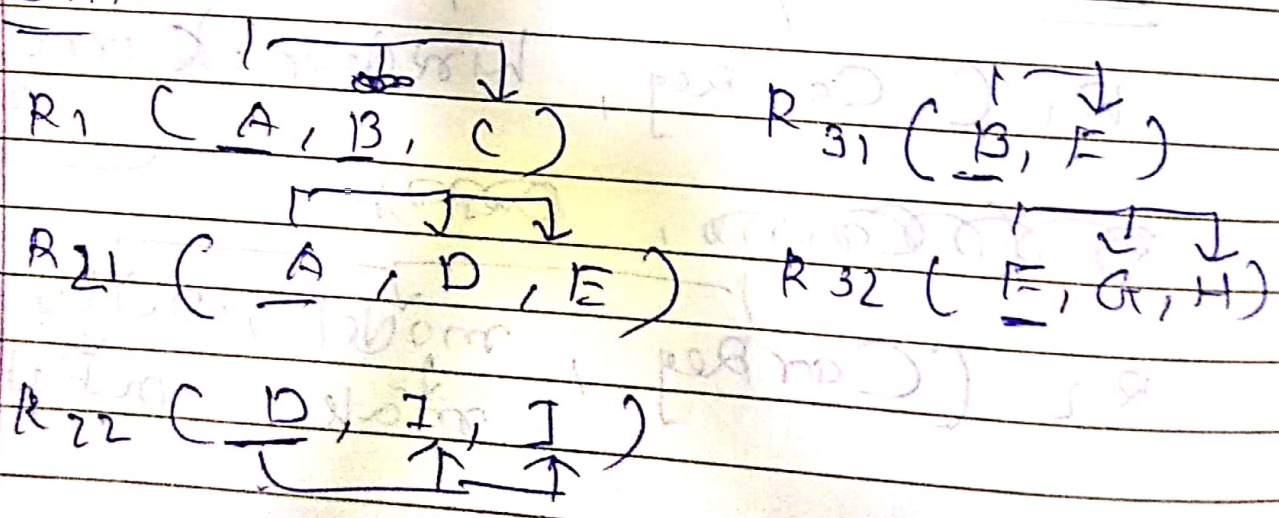 R1 ( A, B, C )
R31 ( B, F )
R21 ( A, D, E )
R32 ( F, G, H )
R22 ( D, I, J )